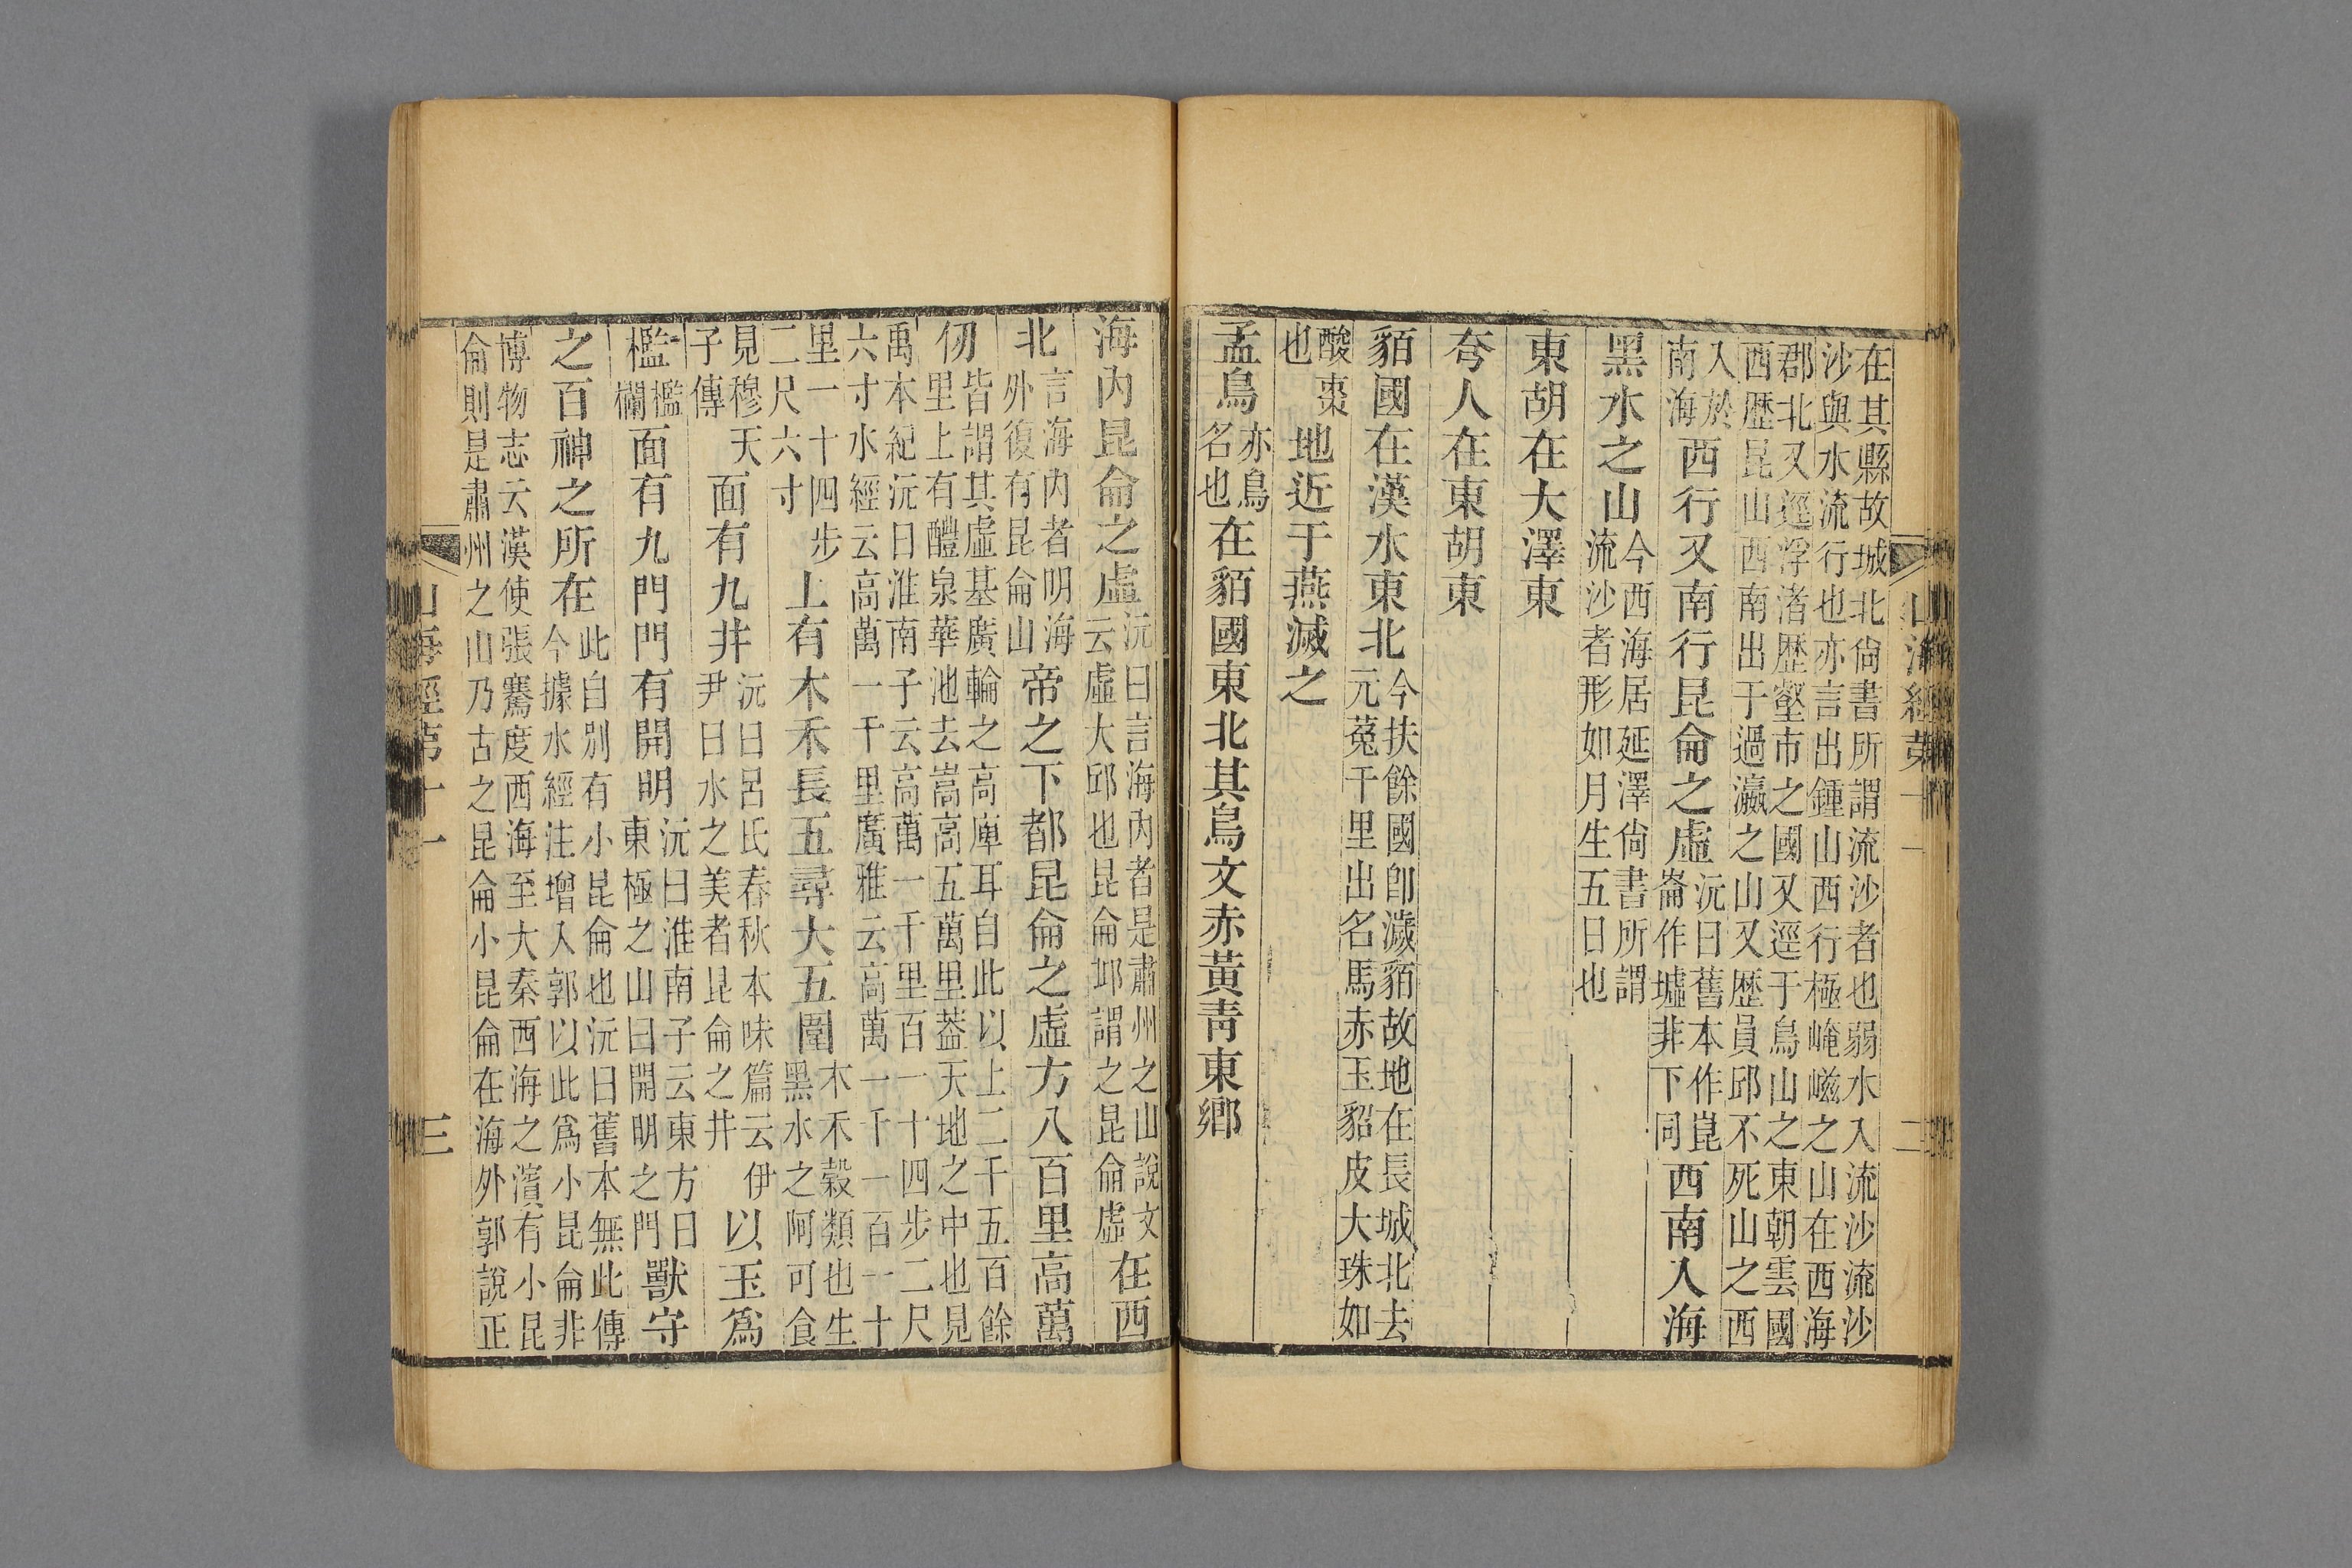 在其縣故城北尙書所謂流沙者也弱水入流沙流沙
沙與水流行也亦言出鍾山西行極崦嵫之山在西海
郡北又逕浮渚歷壑市之國又逕于鳥山之東朝雲國
西歷昆山西南出于過瀛之山又歷員邱不死山之西
入於
南海
西行又南行昆侖之虛
沅曰舊本作崑
崙作墟非下同
西南入海
黑水之山
今西海居延澤尙書所謂
流沙者形如月生五日也
東胡在大澤東
夸人在東胡東
貊國在漢水東北
今扶餘國卽濊貊故地在長城北去
元菟千里出名馬赤玉貂皮大珠如
酸棗
也
地近于燕滅之
孟鳥
亦鳥
名也
在貊國東北其鳥文赤黃靑東鄉
海內昆侖之虛
沅曰言海內者是肅州之山說文
云虛大邱也昆侖邱謂之昆侖虛
在西
北
言海內者明海
外復有昆侖山
帝之下都昆侖之虛方八百里高萬
仞
皆謂其虛基廣輪之高庳耳自此以上二千五百餘
里上有醴泉華池去嵩高五萬里蓋天地之中也見
禹本紀沅曰淮南子云高萬一千里百一十四步二尺
六寸水經云高萬一千里廣雅云高萬一千一百一十
里一十四步
二尺六寸
上有木禾長五尋大五圍
木禾穀類也生
黑水之阿可食
見穆天
子傳
面有九井
沅曰呂氏春秋本味篇云伊
尹曰水之美者昆侖之井
以玉爲
檻
檻
欄
面有九門門有開明
沅曰淮南子云東方曰
東極之山曰開明之門
獸守
之百神之所在
此自別有小昆侖也沅曰舊本無此傳
今據水經注增入郭以此爲小昆侖非
博物志云漢使張騫度西海至大秦西海之濱有小昆
侖則是肅州之山乃古之昆侖小昆侖在海外郭說正
山海經第十一
三